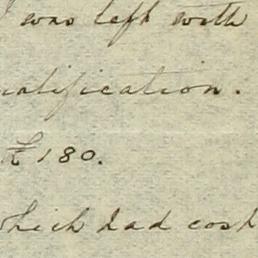 I was left with
ratification.
£180.
which had cost